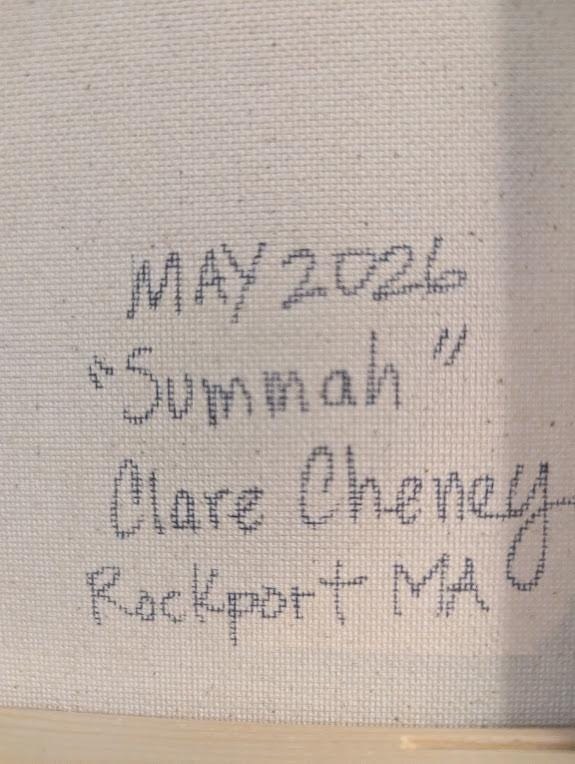 MAY 2026
"Summah"
Clare Cheney
Rockport MA